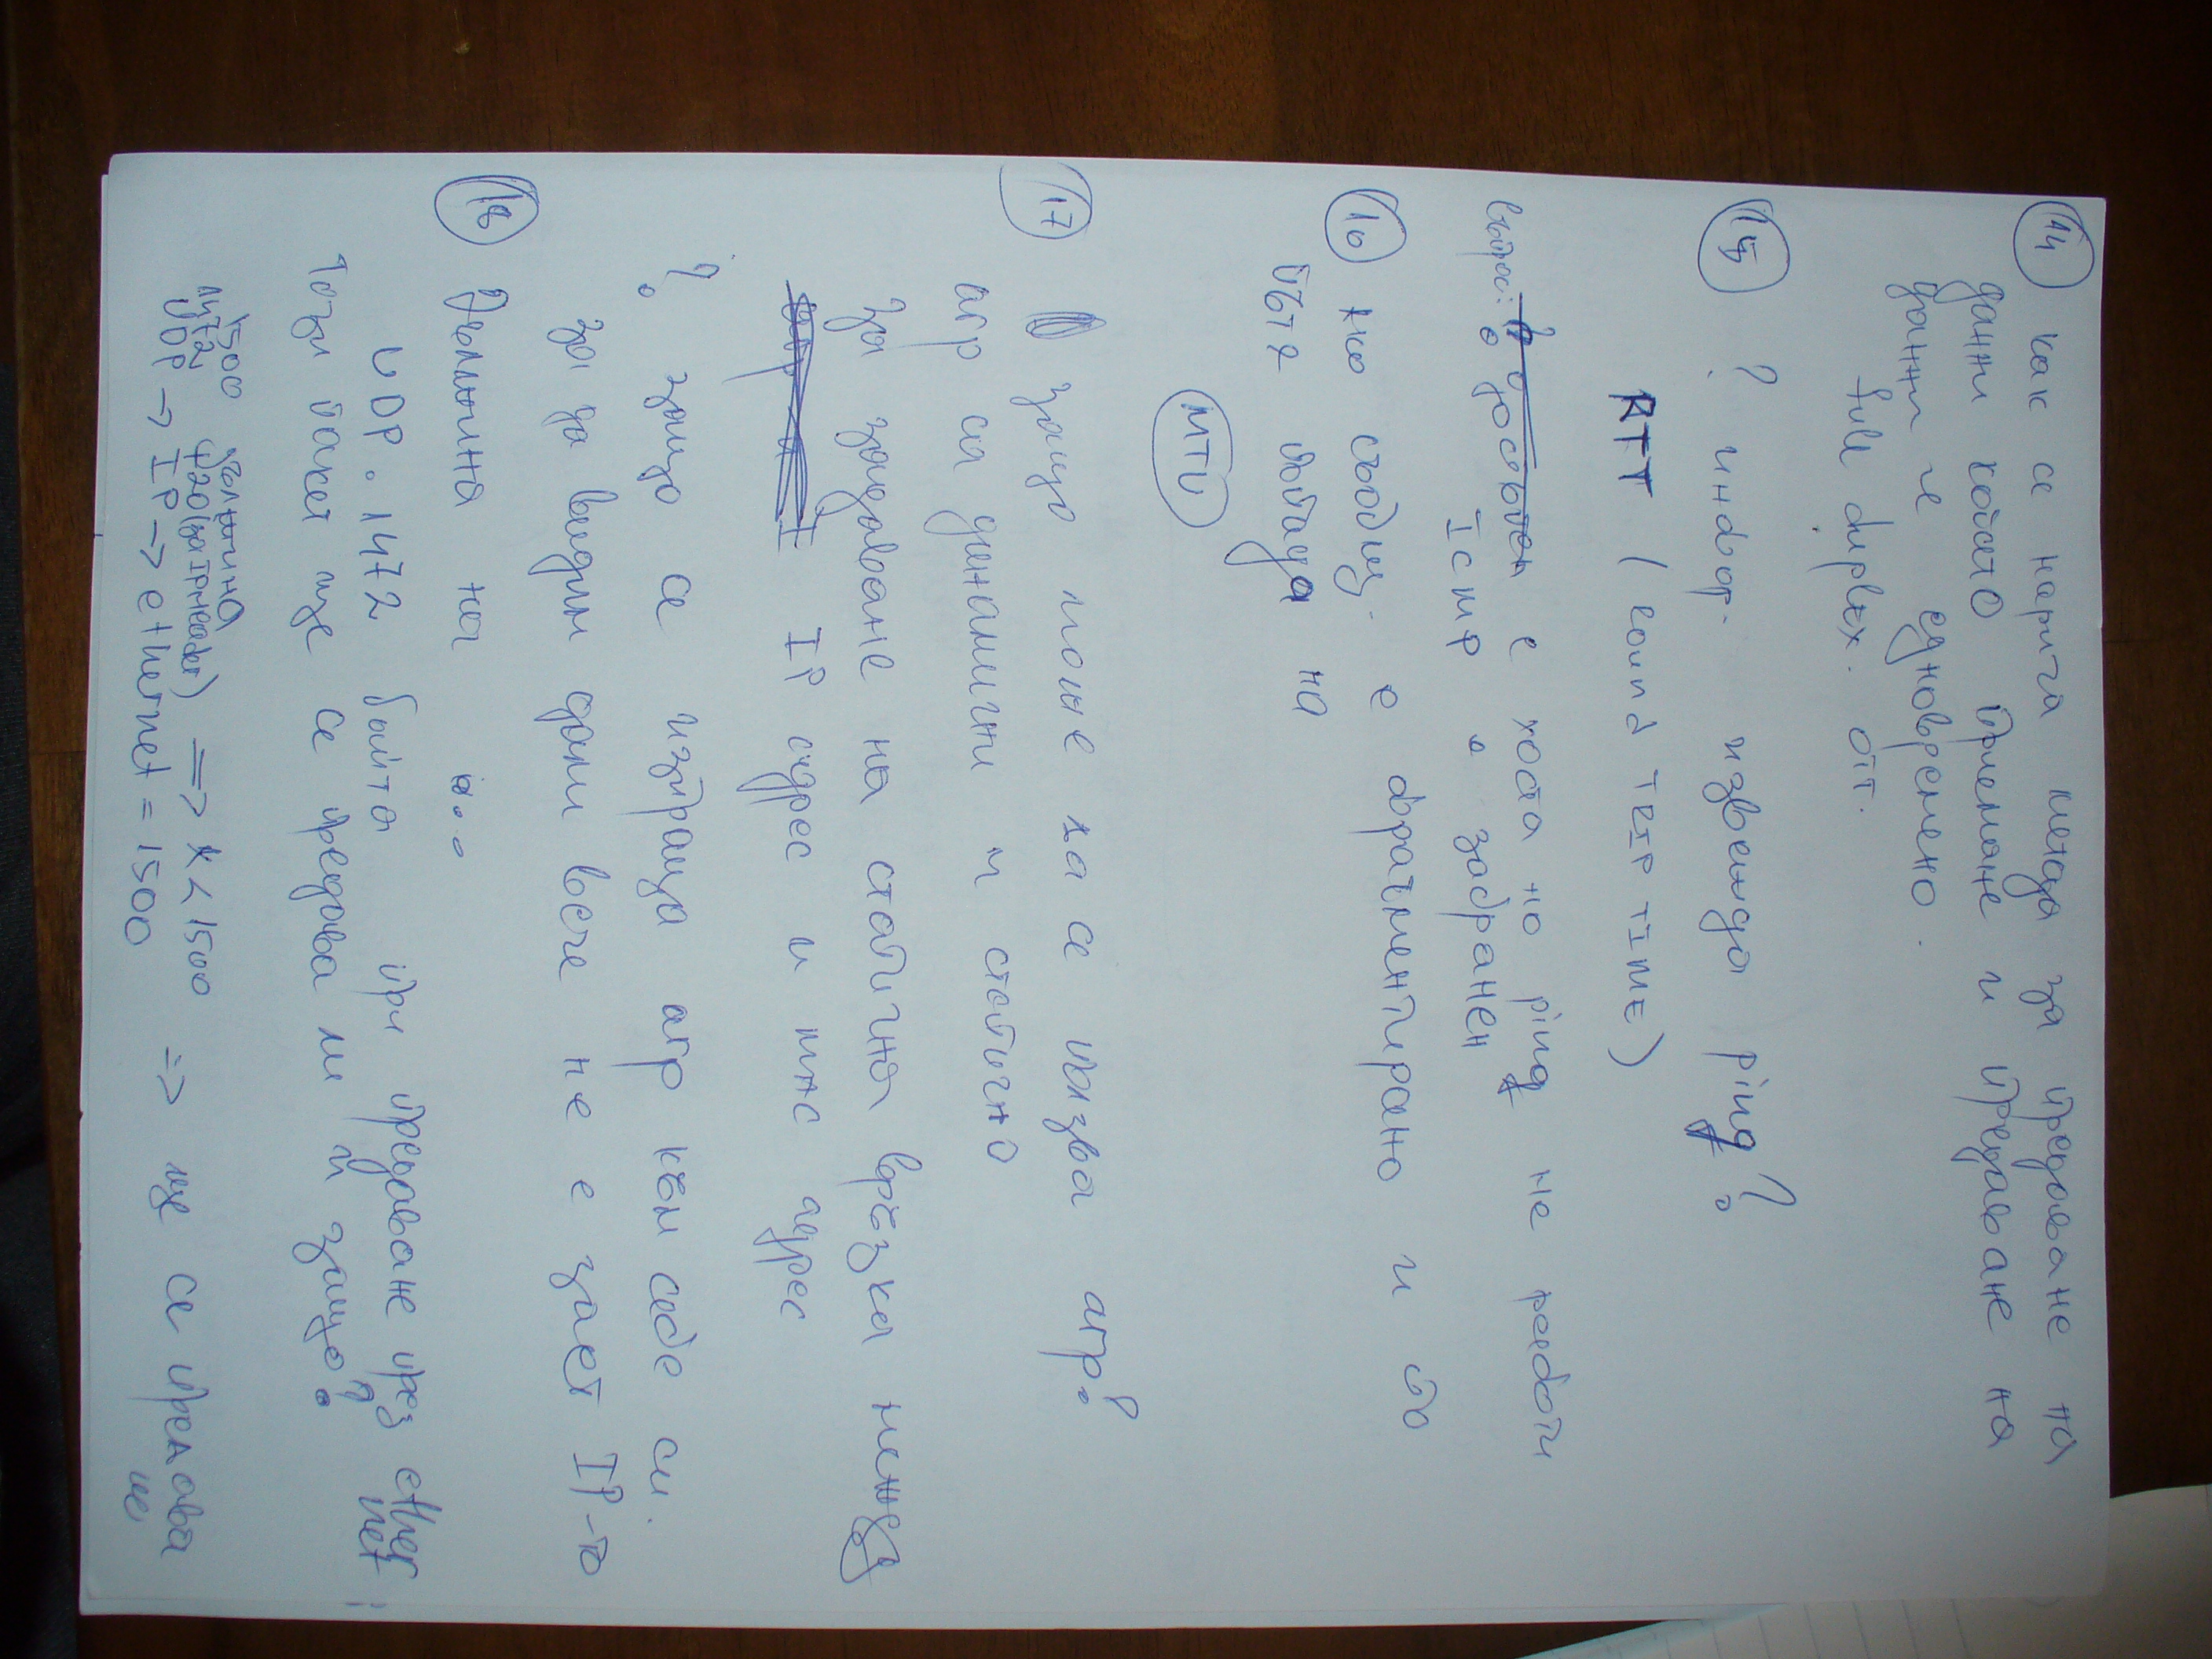 14 как се нарича метода за предаване на
данни когато приемане и предаване на
данни е едновремено.
full duplex. отг.
15 ? инфор. извежда ping?
RTT (round TRIP TIME)
въпрос: достъпен е хоста но ping не работи
ICMP е забранен
16 ко съобщ. е фрагментирано и по
пътя пакета на
MTU
17 защо може да се ползва arp?
arp са динамични и статично
за задаване на статична връзка между
I IP адрес и мас адрес
? защо се изпраща arp към себе си.
за да видим дали вече не е зает IP-то
18 Дължина на ...
UDP. 1472 байта при предаване през ethernet
този пакет ще се предава ли и защо?
1500 дължина
1472 +20(за IP header) => x < 1500 => ще се предава
UDP -> IP -> ethernet = 1500